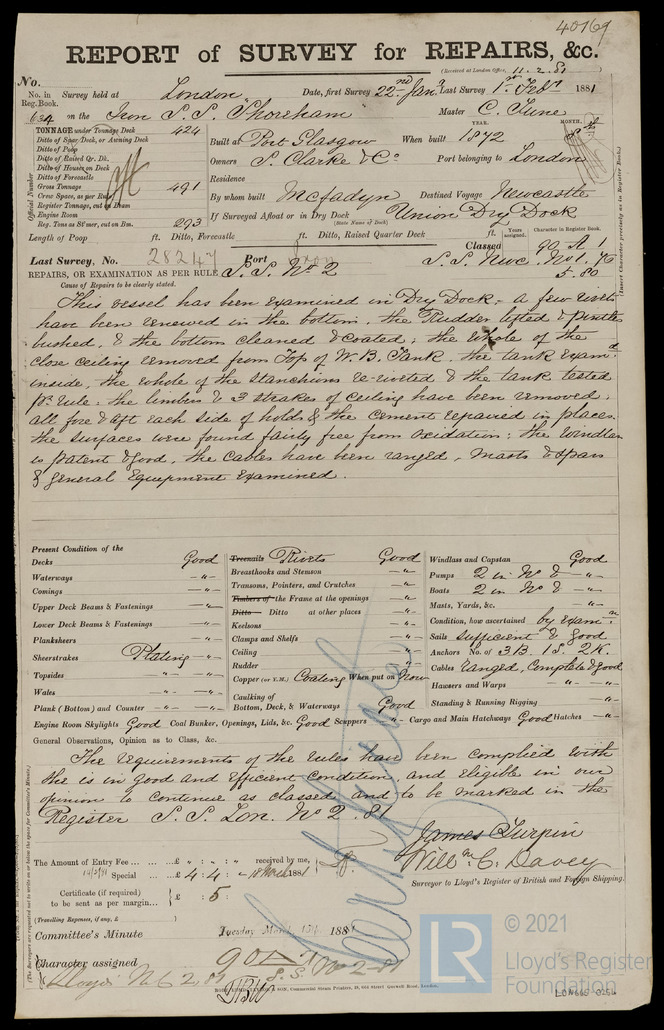 40169
REPORT of SURVEY for REPAIRS, &c.
(Received at London Office, 11.2.81)
No.
No. in Reg. Book. Survey held at London Date, first Survey 22nd Jany. Last Survey 1st Feby. 1881
634 on the Iron S.S. "Shoreham" Master C. Tune
TONNAGE under Tonnage Deck 424
Ditto of Spar Deck, or Awning Deck
Ditto of Poop
Ditto of Raised Qr. Dk.
Ditto of Houses on Deck
Ditto of Forecastle
Gross Tonnage 491
Crew Space, as per Rule
Register Tonnage, cut on Beam
Engine Room
Reg. Tons as St'mer, cut on Bm. 293
Official Number
YEAR. MONTH.
Built at Port Glasgow When built 1872
Owners S. Clarke & Co. Port belonging to London
Residence
By whom built McFadyn Destined Voyage Newcastle
If Surveyed Afloat or in Dry Dock Union Dry Dock
(State Name of Dock)
Length of Poop ft. Ditto, Forecastle ft. Ditto, Raised Quarter Deck ft.
Years assigned. Character in Register Book.
Classed 90 A. 1
Last Survey, No. 28247 Port
S.S. Nwc. No 1. 76
5.80
(Insert Character precisely as in Register Book.)
REPAIRS, OR EXAMINATION AS PER RULE S.S. No 2
Cause of Repairs to be clearly stated.
This vessel has been examined in Dry Dock, - a few rivets
have been renewed in the bottom. the Rudder lifted & pintles
bushed, & the bottom cleaned & coated; the whole of the
close ceiling removed from Top of W.B. Tank. the tank examd.
inside, the whole of the stanchions re-riveted & the tank tested
pr. rule. the limbers & 3 strakes of ceiling have been removed,
all fore & aft each side of holds & the cement repaired in places
the surfaces were found fairly free from oxidation; the windlass
is patent & good, the cables have been ranged, masts & spars
& general equipment examined.
Present Condition of the
Decks Good
Waterways -"-
Comings -"-
Upper Deck Beams & Fastenings -"-
Lower Deck Beams & Fastenings -"-
Planksheers -"-
Sheerstrakes Plating -"-
Topsides -"- -"-
Wales -"- -"-
Plank (Bottom) and Counter -"- -"-
Engine Room Skylights Good Coal Bunker, Openings, Lids, &c. Good Scuppers -"- Cargo and Main Hatchways Good Hatches -"-
Treenails Rivets Good
Breasthooks and Stemson -"-
Transoms, Pointers, and Crutches -"-
Timbers of the Frame at the openings -"-
Ditto Ditto at other places -"-
Keelsons -"-
Clamps and Shelfs -"-
Ceiling -"-
Rudder -"-
Copper (or Y.M.) Coating When put on Now
Caulking of
Bottom, Deck, & Waterways Good
Windlass and Capstan Good
Pumps 2 in No & -"-
Boats 2 in No & -"-
Masts, Yards, &c. -"-
Condition, how ascertained by examn.
Sails sufficient & Good
Anchors No. of 3B. 1S. 2K.
Cables ranged, complete & good
Hawsers and Warps -"- -"-
Standing & Running Rigging -"-
General Observations, Opinion as to Class, &c.
The requirements of the rules have been complied with
she is in good and efficient condition, and eligible in our
opinion to continue as classed and to be marked in the
Register S.S. Lon. No 2. 81
James Turpin
Willm. C. Davey
Surveyor to Lloyd's Register of British and Foreign Shipping.
The Amount of Entry Fee ... £ " : " : " received by me,
Special ... £ 4 : 4 : - 1881
Certificate (if required) to be sent as per margin... £ : 5
(Travelling Expenses, if any, £ )
Committee's Minute Tuesday March 15th 1881
Character assigned 90 A 1
S.S. No 2-81
Lloyd's
© 2021
LR
Lloyd's Register
Foundation
LON665-0256